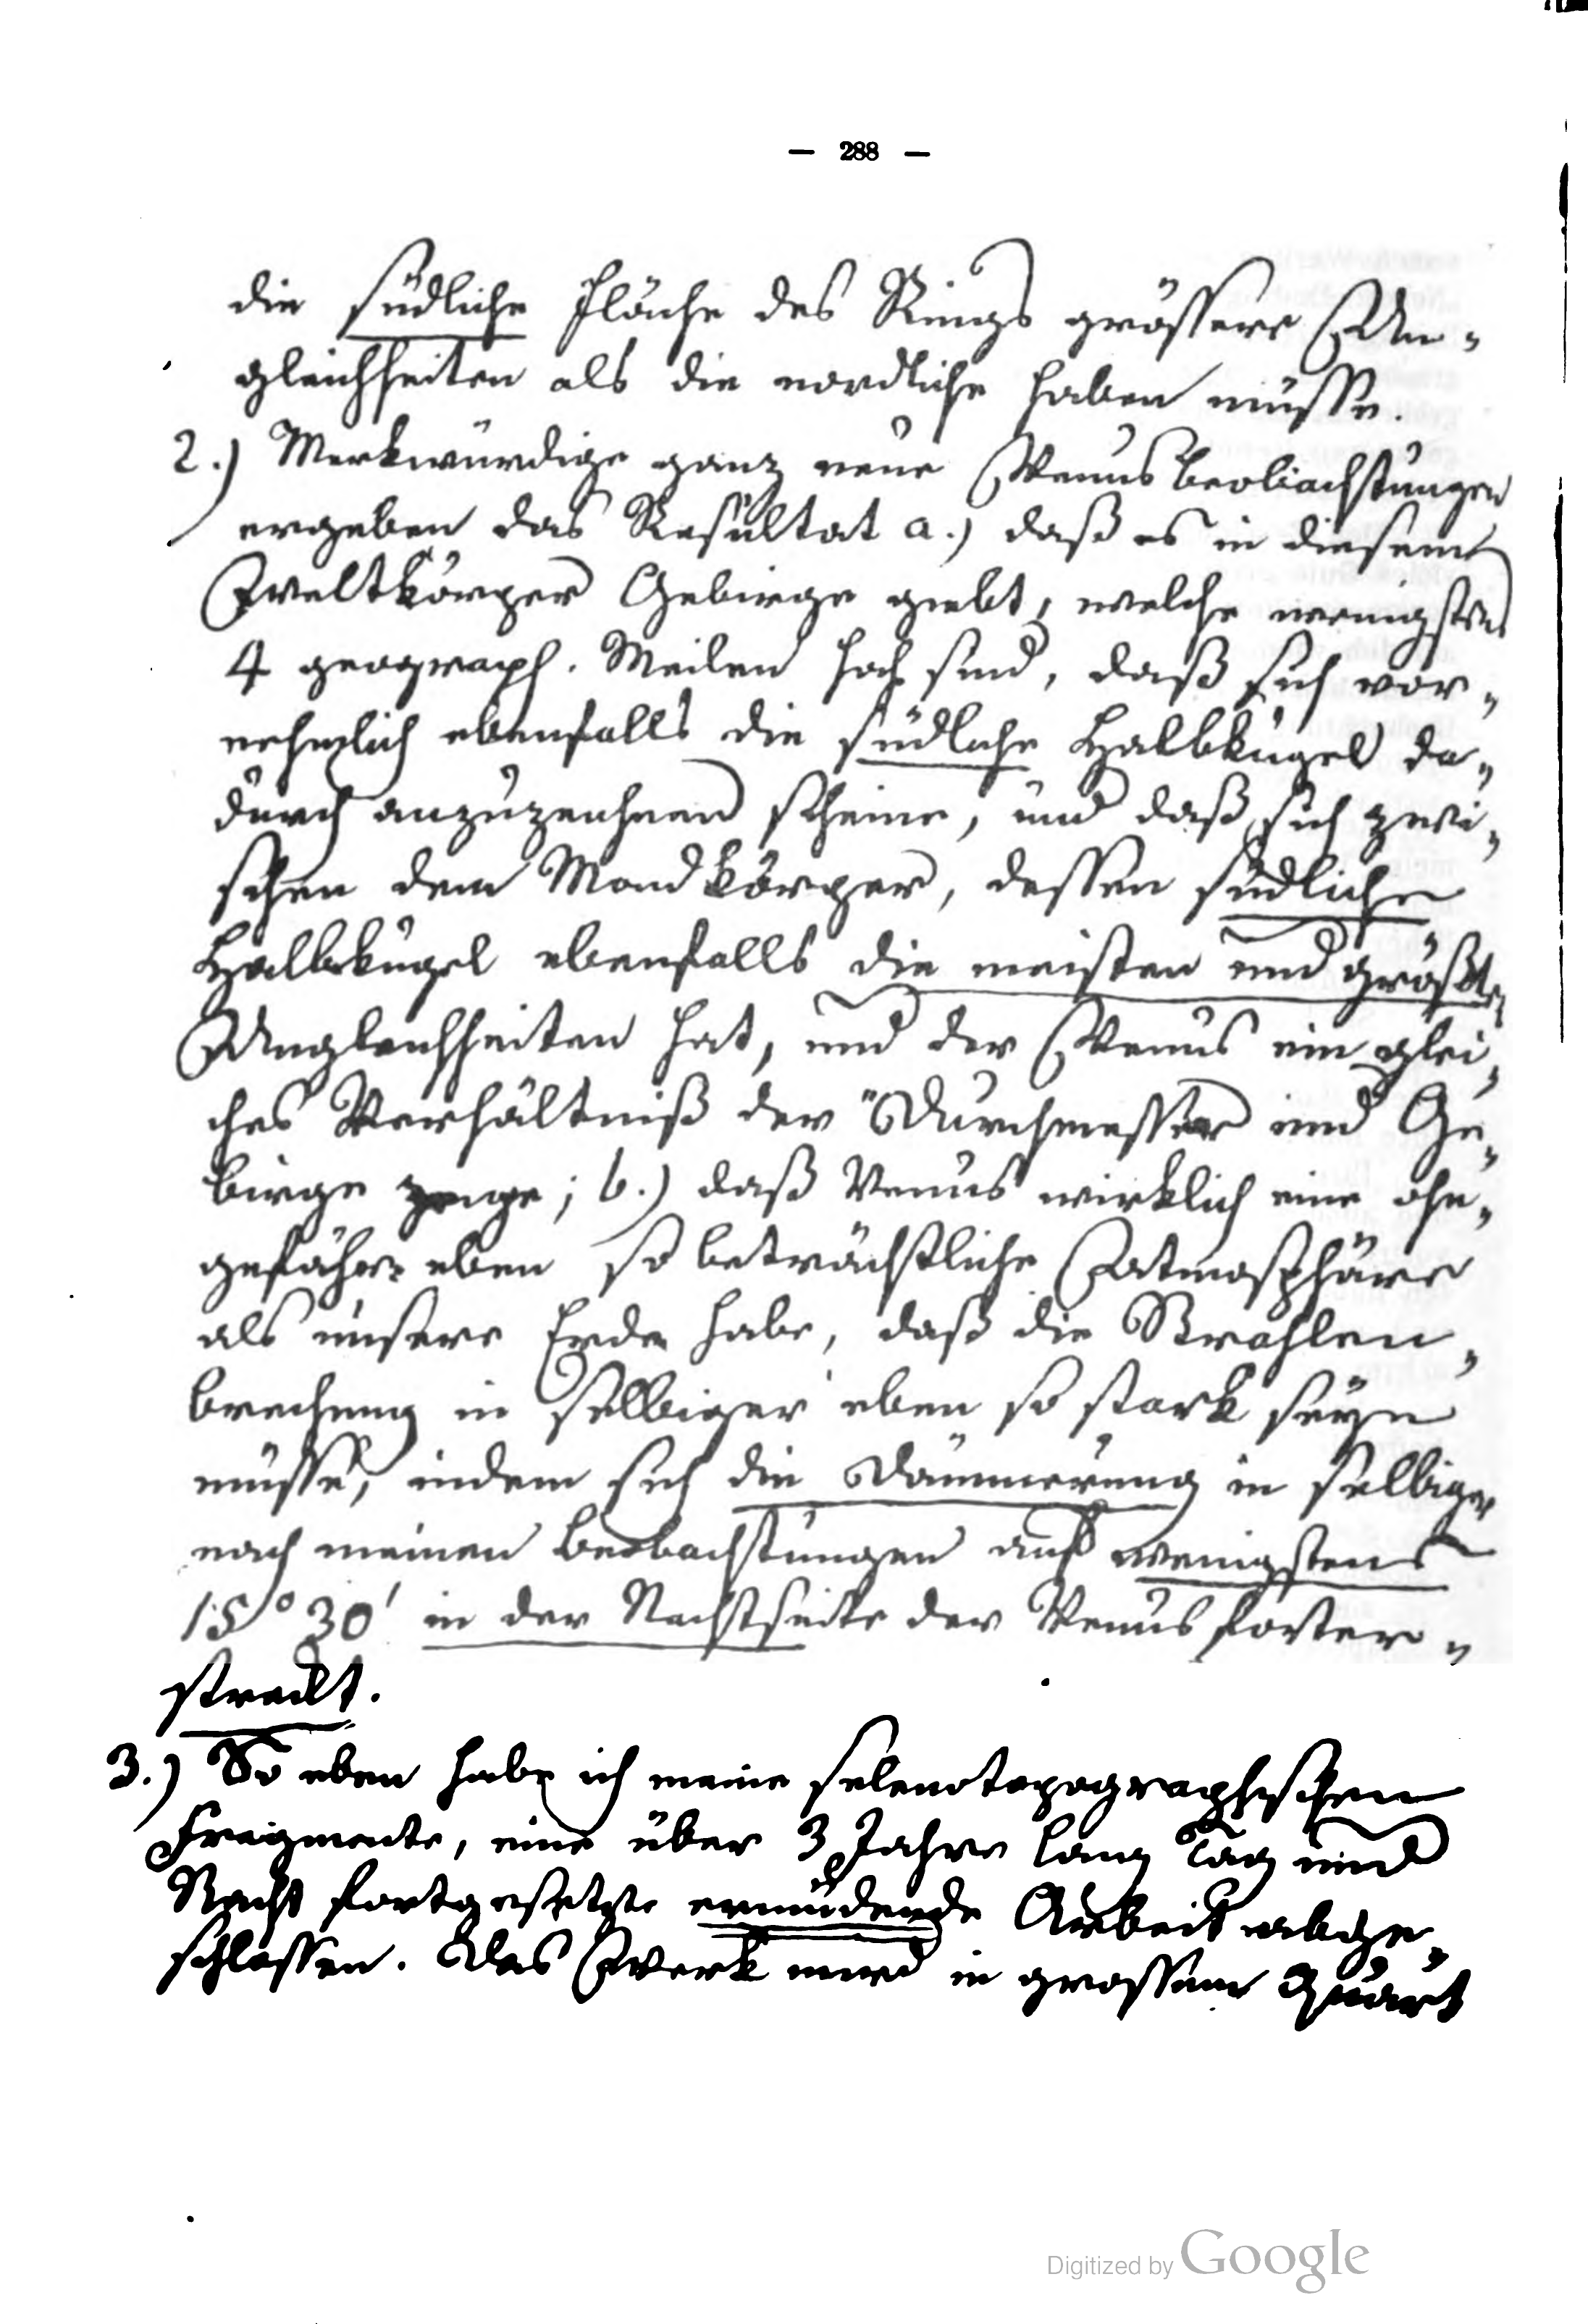 — 288 —
die südliche Fläche des Rings grössere Un„
gleichheiten als die nordliche haben müsse.
2.) Merkwürdige ganz neue Venusbeobachtungen
ergeben das Resultat a.) daß es in diesem
Weltkörper Gebirge giebt, welche wenigstens
4 geograph. Meilen hoch sind, daß sich vor„
nehmlich ebenfalls die südliche Halbkugel da„
durch auszuzeichnen scheine, und daß sich zwi„
schen dem Mondkörper, dessen südliche
Halbkugel ebenfalls die meisten und größten
Ungleichheiten hat, und der Venus ein glei„
ches Verhältniß der Durchmesser und Ge„
birge zeige; b.) daß Venus wirklich eine ohn„
gefähr eben so beträchtliche Atmosphäre
als unsere Erde habe, daß die Strahlen„
brechung in selbiger eben so stark seyn
müsse, indem sich die Dämmerung in selbiger
nach meinen Beobachtungen auf wenigstens
15° 30' in der Nachtseite der Venus forter„
streckt.
3.) So eben habe ich meine selenotopographischen
Fragmente, eine über 3 Jahre lang Tag und
Nacht fortgesetzte ermüdende Arbeit abge„
schlossen. Das Werk wird in grossem Quart
Digitized by Google